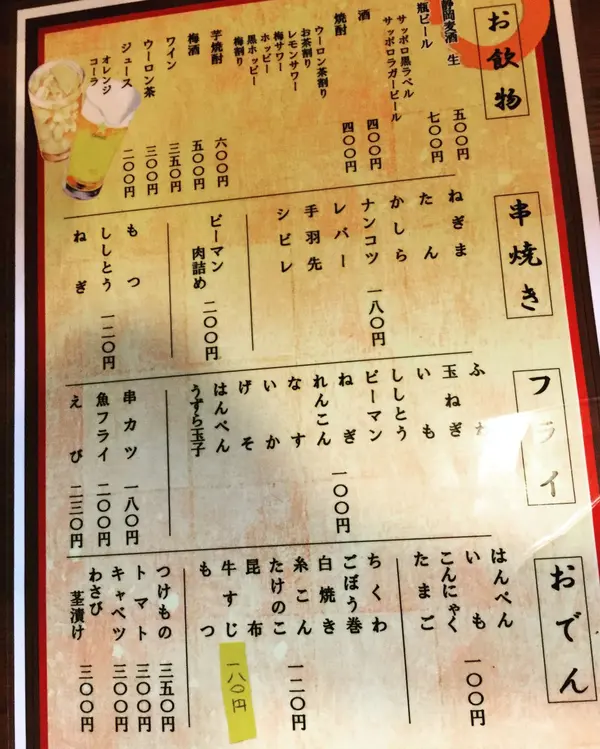 お飲物
静岡麦酒 生 五〇〇円
瓶ビール 七〇〇円
サッポロ黒ラベル
サッポロラガービール
酒 四〇〇円
焼酎 四〇〇円
ウーロン茶割り
お茶割り
レモンサワー
梅サワー
ホッピー
黒ホッピー
梅割り
芋焼酎 六〇〇円
梅酒 五〇〇円
ワイン 三五〇円
ウーロン茶 三〇〇円
ジュース 二〇〇円
オレンジ
コーラ
串焼き
ねぎま
たん
かしら
ナンコツ 一八〇円
レバー
手羽先
シビレ
ピーマン
肉詰め 二〇〇円
もつ
ししとう 一二〇円
ねぎ
フライ
玉ねぎ
いも
ししとう
ピーマン
ねぎ 一〇〇円
れんこん
なす
いか
げそ
はんぺん
うずら玉子
串カツ 一八〇円
魚フライ 二〇〇円
えび 二三〇円
おでん
はんぺん
いも 一〇〇円
こんにゃく
たまご
ちくわ
ごぼう巻
白焼き
糸こん 一二〇円
たけのこ
昆布
牛すじ 一八〇円
もつ
つけもの 三五〇円
トマト 三〇〇円
キャベツ 三〇〇円
わさび
茎漬け 三〇〇円